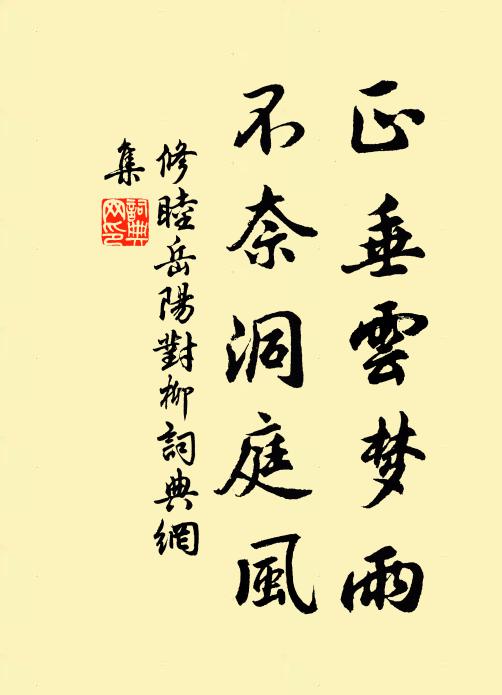 正垂雲梦雨
不奈洞庭風
修睦岳陽對柳詞典網
集
詞典
网印